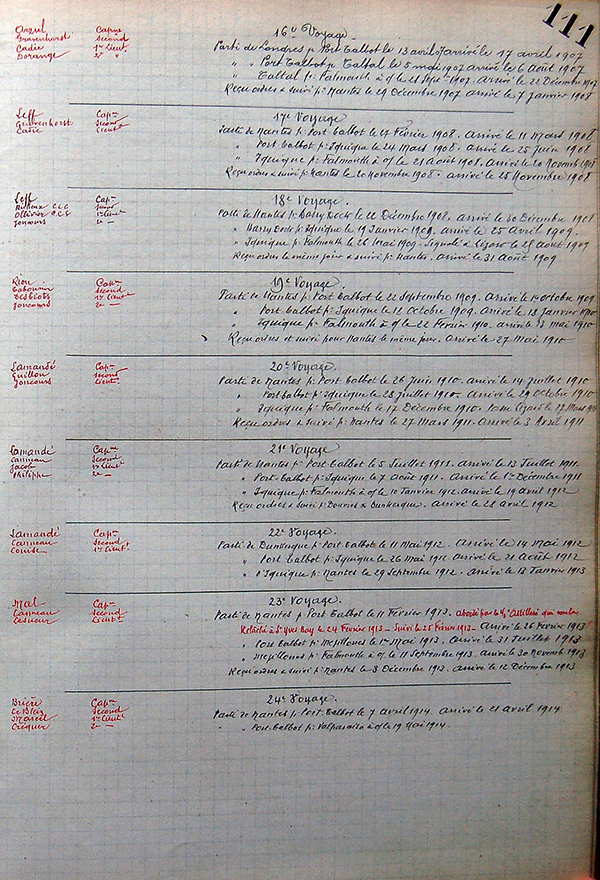 111
16e Voyage
Anzul Capne Parti de Londres pr Port Talbot le 13 avril 07 arrivé le 17 avril 1907
Gravenhorst Second " " Port Talbot pr Taltal le 5 mai 1907 arrivé le 6 Août 1907
Cadic 1er Lieut " Taltal pr Falmouth à o/ le 21 Septre 1907. Arrivé le 22 Décembre 1907
Dorange 2e " Reçu ordres & suivi pr Nantes le 29 Décembre 1907 Arrivé le 7 Janvier 1908
17e Voyage
Leff Capne Parti de Nantes pr Port Talbot le 27 Février 1908. Arrivé le 11 Mars 1908
Gravenhorst Second " Port Talbot pr Iquique le 24 Mars 1908. Arrivé le 25 Juin 1908
Cadic Lieut " Iquique pr Falmouth à o/ le 21 Août 1908. Arrivé le 20 Novemb 1908
Reçu ordres & suivi pr Nantes le 20 Novembre 1908. arrivé le 25 Novembre 1908
18e Voyage.
Leff Capne Parti de Nantes pr Barry Dock le 22 Décembre 1908. arrivé le 30 Décembre 1908
C.L.C Second " Barry Dock pr Iquique le 19 Janvier 1909. arrivé le 25 Avril 1909.
Ollivier P.C.S. 1er Lieut " Iquique pr Falmouth le 26 Mai 1909. Signalé à Lizard le 27 août 1909
Joncours 2e — Reçu ordres le même jour & suivi pr Nantes. Arrivé le 31 Août 1909
19e Voyage
Riou Capne Parti de Nantes pr Port Talbot le 22 Septembre 1909. Arrivé le 1er Octobre 1909
Second " Port Talbot pr Iquique le 12 Octobre 1909. Arrivé le 13 Janvier 1910
Desbois 1er Lieut " Iquique pr Falmouth à o/ le 22 Février 1910. arrivé le 23 mai 1910
Joncours 2e — Reçu ordres et suivi pour Nantes le même jour. Arrivé le 27 Mai 1910
20e Voyage.
Lamandé Capne Parti de Nantes pr Port Talbot le 26 Juin 1910. Arrivé le 14 Juillet 1910
Guillou Second " Port Talbot pr Iquique le 28 Juillet 1910. Arrivé le 29 Octobre 1910
Joncours Lieut. " Iquique pr Falmouth le 17 Décembre 1910. Passe Lizard le 27 Mars 1911
Reçu ordres & suivi pr Nantes le 27 Mars 1911. Arrivé le 3 Avril 1911
21e Voyage
Lamandé Capne Parti de Nantes pr Port Talbot le 5 Juillet 1911. Arrivé le 13 Juillet 1911.
Canneau Second " Port Talbot pr Iquique le 7 Août 1911. Arrivé le 1er Décembre 1911
Jacob 1er Lieut " Iquique pr Falmouth à o/ le 11 Janvier 1912. Arrivé le 19 Avril 1912
Philippe 2e — Reçu ordres & suivi pr Douvres & Dunkerque. Arrivé le 28 Avril 1912
22e Voyage.
Lamandé Capne Parti de Dunkerque pr Port Talbot le 11 Mai 1912. Arrivé le 14 Mai 1912
Canneau Second " Port Talbot pr Iquique le 26 Mai 1912. Arrivé le 21 Août 1912
1er Lieut. " d'Iquique pr Nantes le 29 Septembre 1912. Arrivé le 13 Janvier 1913
23e Voyage.
Mal Capne Parti de Nantes pr Port Talbot le 11 Février 1913. abordé par le Artillerii qui sombre
Canneau Second Relâché à St Yves Bay le 24 Février 1913 - Suivi le 25 Février 1913 - Arrivé le 26 Février 1913
Lesueur Lieut " Port Talbot pr Mejillones le 1er Mai 1913. Arrivé le 31 Juillet 1913
" Mejillones pr Falmouth à o/ le 11 Septembre 1913. Arrivé le 30 Novemb 1913
Reçu ordres & suivi pr Nantes le 3 Décembre 1913. Arrivé le 12 Décembre 1913
24e Voyage.
Brière Capne Parti de Nantes pr Port Talbot le 7 Avril 1914. Arrivé le 21 Avril 1914
Le Bleiz Second " Port Talbot pr Valparaiso à o/ le 19 Mai 1914.
Marcil 1er Lieut
Créquer 2e —